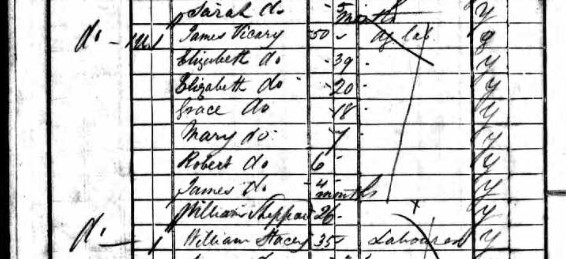 Sarah do - 5 months y
do - 1 James Vicary 50 - Ag lab y
Elizabeth do - 39 - y
Elizabeth do - 20 - y
Grace do - 18 - y
Mary do - 7 - y
Robert do 6 - y
James do - 4 months y
William Sheppard - 26 - y
do - 1 William Stacey 35 Labourer y